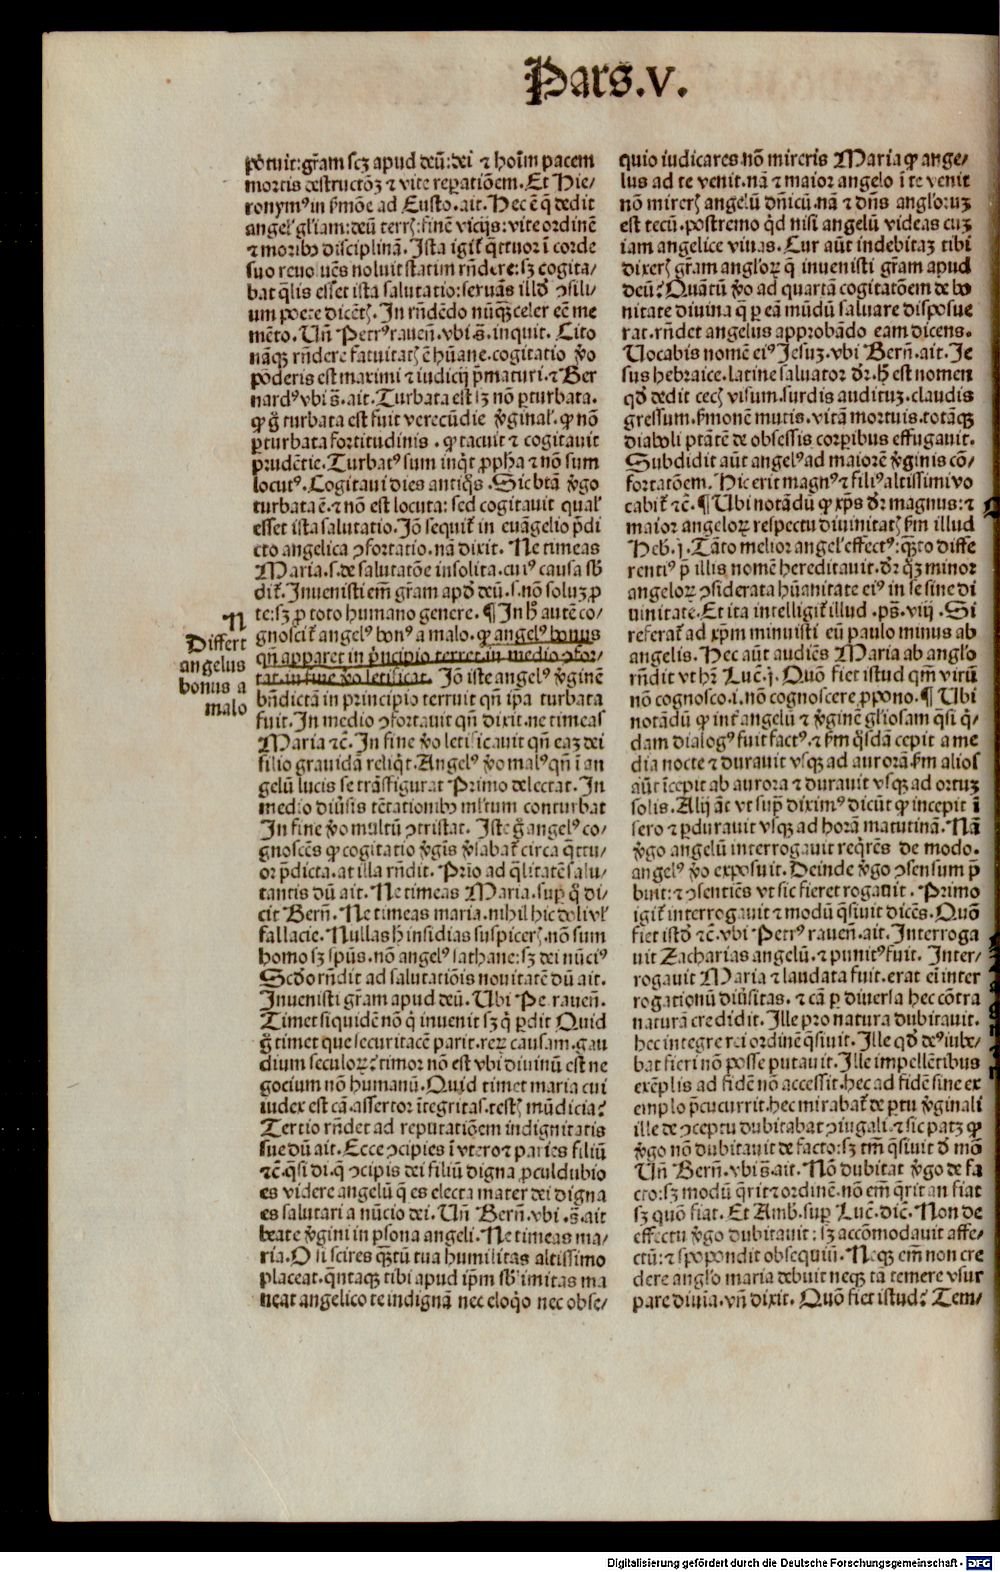 Pars.v.
ꝑtuit:gr̃am scꝫ apud deũ:dei ⁊ hoĩm pacem
mortis destructõꝫ ⁊ vite reparatiõem. Et Hie/
ronymꝰ in ẜmõe ad Eusto. ait. Hec ẽ q̃ dedit
angel' gl'iam: deũ terrꝭ: finẽ vicijs: vite ordinẽ
⁊ moribꝰ disciplinã. Ista igit᷑ q̈ttuor ĩ corde
suo reuoluẽs noluit statim rñdere: sꝫ cogita/
bat q̈lis esset ista salutatio: seruãs illđ ꝯsili/
um poete dicẽtꝭ. In rñdẽdo nũq̃ꝫ celer eẽ me
mẽto. Uñ Petrꝰ rauẽn. vbi s̃. inquit. Cito
nãqꝫ rñdere fatuitatꝭ ẽ hũane. cogitatio ꝟo
põderis est maximi ⁊ iudicij p̃maturi. ⁊ Ber
nardꝰ vbi s̃. ait. Turbata est sꝫ nõ ꝑturbata.
ꝙ g̊ turbata est fuit verecũdie ꝟginal'. ꝙ nõ
ꝑturbata fortitudinis. ꝙ tacuit ⁊ cogitauit
prudẽtie. Turbatꝰ sum inq̇t ꝓpħa ⁊ nõ sum
locutꝰ. Cogitaui dies antiq̊s. Sic btã ꝟgo
turbata ẽ. ⁊ nõ est locuta: sed cogitauit qual'
esset ista salutatio. Jõ sequit᷑ in euãgelio p̃di
cto angelica ꝯfortatio. nã dixit. Ne timeas
Maria. s. de salutatõe insolita. cuiꝰ causa sb̃
dit᷑. Inuenisti em̃ gr̃am apđ deũ. s. nõ soluꝫ ꝓ
te: sꝫ ꝓ toto humano genere. ¶ In h̊ autẽ co/
gnoscit᷑ angelꝰ bonꝰ a malo. ꝙ angelꝰ bonus
qñ apparet in p̃ncipio terret. in medio ꝯfor/
tat. in fine ꝟo letificat. Jõ iste angelꝰ ꝟginẽ
bñdictã in principio terruit qñ ip̃a turbata
fuit. In medio ꝯfortauit qñ dixit. ne timeas
Maria ⁊c̃. In fine ꝟo letificauit qñ eaꝫ dei
filio grauidam reliq̇t. Angelꝰ ꝟo malꝰ qñ ĩ an
gelũ lucis se trãsfigurat Primo delectat. In
medio diũsis tẽtationibꝰ ml'tum conturbat
In fine ꝟo multũ ꝯtristat. Iste g̊ angelꝰ co/
gnoscẽs ꝙ cogitatio ꝟgĩs ꝟsabat᷑ circa q̈ttu/
or p̃dicta. at illa rñdit. Prĩo ad q̈litatẽ salu/
tantis dũ ait. Ne timeas Maria. suꝑ q̊ di/
cit Berñ. Ne timeas maria. nihil hic doli vl'
fallacie. Nullas h̊ insidias suspicerꝭ. nõ sum
homo sꝫ spũs. nõ angelꝰ sathane: sꝫ dei nũciꝰ
Scđo rñdit ad salutatiõis nouitatẽ dũ ait.
Inuenisti gr̃am apud deũ. Ubi Pe. rauẽn.
Timet siquidẽ nõ q̊ inuenit sꝫ q̊ ꝑdit Quid
g̊ timet que securitatẽ parit. reꝝ causam. gau
dium seculoꝝ? timor nõ est vbi diuinũ est ne
gocium nõ humanũ. Quid timet maria cui
iudex est cã. assertor ĩtegritas. testꝭ mũdicia?
Tertio rñdet ad reputatiõem indignitatis
sue dũ ait. Ecce ꝯcipies ĩ vtero ⁊ paries filiũ
⁊c̃. q̈si di. q̃ ꝯcipis dei filiũ digna ꝓculdubio
es videre angelũ q̃ es electa mater dei digna
es salutari a nũcio dei. Uñ Berñ. vbi. s̃. ait
beate ꝟgini in ꝑsona angeli. Ne timeas ma/
ria. O si scires q̃ꝫtũ tua humilitas altissimo
placeat. q̈ntaqꝫ tibi apud ip̃m sb'limitas ma
neat angelico te indignã nec eloq̊o nec obse/
N
Differt
angelus
bonus a
malo
quio iudicares. nõ mireris Maria ꝙ ange/
lus ad te venit. nã ⁊ maior angelo ĩ te venit
nõ mirerꝭ angelũ dñicũ. nã ⁊ dñs angl'oruꝫ
est tecũ. postremo q̊d nisi angelũ videas cuꝫ
iam angelice viuas. Cur aũt indebitaꝫ tibi
dixerꝭ gr̃am angl'oꝝ q̃ inuenisti gr̃am apud
deũ? Quãtũ ꝟo ad quartã cogitatõem de bo
nitate diuina q̃ ꝑ eã mũdũ saluare disposue
rat. rñdet angelus approbãdo eam dicens.
Uocabis nomẽ eiꝰ Jesuꝫ. vbi Berñ. ait. Je
sus hebraice. latine saluator đr. h̊ est nomen
qđ dedit cecꝭ visum. surdis audituꝫ. claudis
gressum. ẜmonẽ mutis. vitã mortuis. totãqꝫ
diaboli ptãtẽ de obsessis corꝑibus effugauit.
Subdidit aũt angelꝰ ad maiorẽ ꝟginis cõ/
fortatõem. Hic erit magnꝰ ⁊ filiꝰ altissimi vo
cabit᷑ ⁊c̃. ¶ Ubi notãdũ ꝙ xp̃s đr magnus: ⁊
maior angeloꝝ respectu diuinitatꝭ ẜm illud
Heb. j. Tãto melior angel' effectꝰ: q̃ꝫto diffe
rentiꝰ p̃ illis nomẽ hereditauit. đr q̊ꝫ minor
angeloꝝ ꝯsiderata hũanitate eiꝰ in se sine di
uinitate. Et ita intelligit᷑ illud. ps̃. viij. Si
referat᷑ ad xp̃m minuisti eũ paulo minus ab
angelis. Hec aũt audiẽs Maria ab angl'o
rñdit vt hr̃ Luc̃. j. Quõ fiet istud qm̃ virũ
nõ cognosco. i. nõ cognoscere ꝓpono. ¶ Ubi
notãdũ ꝙ int᷑ angelũ ⁊ ꝟginẽ gl'iosam q̈si q̇/
dam dialogꝰ fuit factꝰ. ⁊ ẜm q̊sdã cepit a me
dia nocte ⁊ durauit vsqꝫ ad aurorã. ẜm alios
aũt ĩcepit ab aurora ⁊ durauit vsqꝫ ad ortuꝫ
solis. Alij ãt vt suꝑ diximꝰ dicũt ꝙ incepit ĩ
sero ⁊ ꝑdurauit vsqꝫ ad horã matutinã. Nã
ꝟgo angelũ interrogauit req̇rẽs de modo.
angelꝰ ꝟo exposuit. Deinde ꝟgo ꝯsensum p̃
buit: ⁊ ꝯsentiẽs vt sic fieret rogauit. Primo
igit᷑ interrogauit ⁊ modũ q̃siuit dicẽs. Quõ
fiet istđ ⁊c̃. vbi Petrꝰ rauẽn. ait. Interroga
uit Zacharias angelũ. ⁊ punitꝰ fuit. Inter/
rogauit Maria ⁊ laudata fuit. erat eĩ inter
rogationũ diũsitas. ⁊ cã ꝑ diuersa hec cõtra
naturã credidit. Ille pro natura dubitauit.
hec integre rei ordinẽ q̃siuit. Ille qđ deꝰ iube/
bat fieri nõ posse putauit. Ille impellẽtibus
exẽplis ad fidẽ nõ accessit. hec ad fidẽ sine ex
emplo p̃cucurrit. hec mirabat᷑ de ꝑtu ꝟginali
ille de ꝯceptu dubitabat ꝯiugali. ⁊ sic patꝫ ꝙ
ꝟgo nõ dubitauit de facto: sꝫ tm̃ q̃siuit đ mõ
Uñ Berñ. vbi s̃. ait. Nõ dubitat ꝟgo de fa
cto: sꝫ modũ q̃rit ⁊ ordinẽ. nõ em̃ q̃rit an fiat
sꝫ quõ fiat. Et Amb. suꝑ Luc̃. dic̃. Non de
effectu ꝟgo dubitauit: sꝫ accõmodauit affe/
ctũ: ⁊ spopondit obsequiũ. Neqꝫ em̃ non cre
dere angl'o maria debuit neqꝫ tã temere vsur
pare diuĩa. vñ dixit. Quõ fiet istud? Tem/
Digitalisierung gefördert durch die Deutsche Forschungsgemeinschaft - DFG